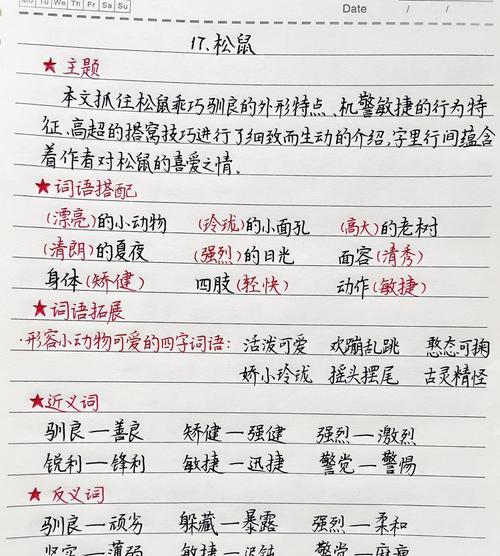 Mo Tu We Th Fr Sa Su
Date / /
17.松鼠
★主题
本文抓住松鼠乖巧驯良的外形特点、机警敏捷的行为特
征、高超的搭窝技巧进行了细致而生动的介绍,字里行间蕴含
着作者对松鼠的喜爱之情。
★词语搭配
(漂亮)的小动物 (玲珑)的小面孔 (高大)的老树
(清朗)的夏夜 (强烈)的日光 面容(清秀)
身体(矫健) 四肢(轻快) 动作(敏捷)
★词语拓展
·形容小动物可爱的四字词语: 活泼可爱 欢蹦乱跳 憨态可掬
娇小玲珑 摇头摆尾 古灵精怪
★近义词
驯良—善良 矫健—强健 强烈—激烈
锐利—锋利 敏捷—迅捷 警觉—警惕
★反义词
驯良—顽劣 躲藏—暴露 强烈—柔和
坚实—薄弱 敏捷—迟钝 警觉—麻痹